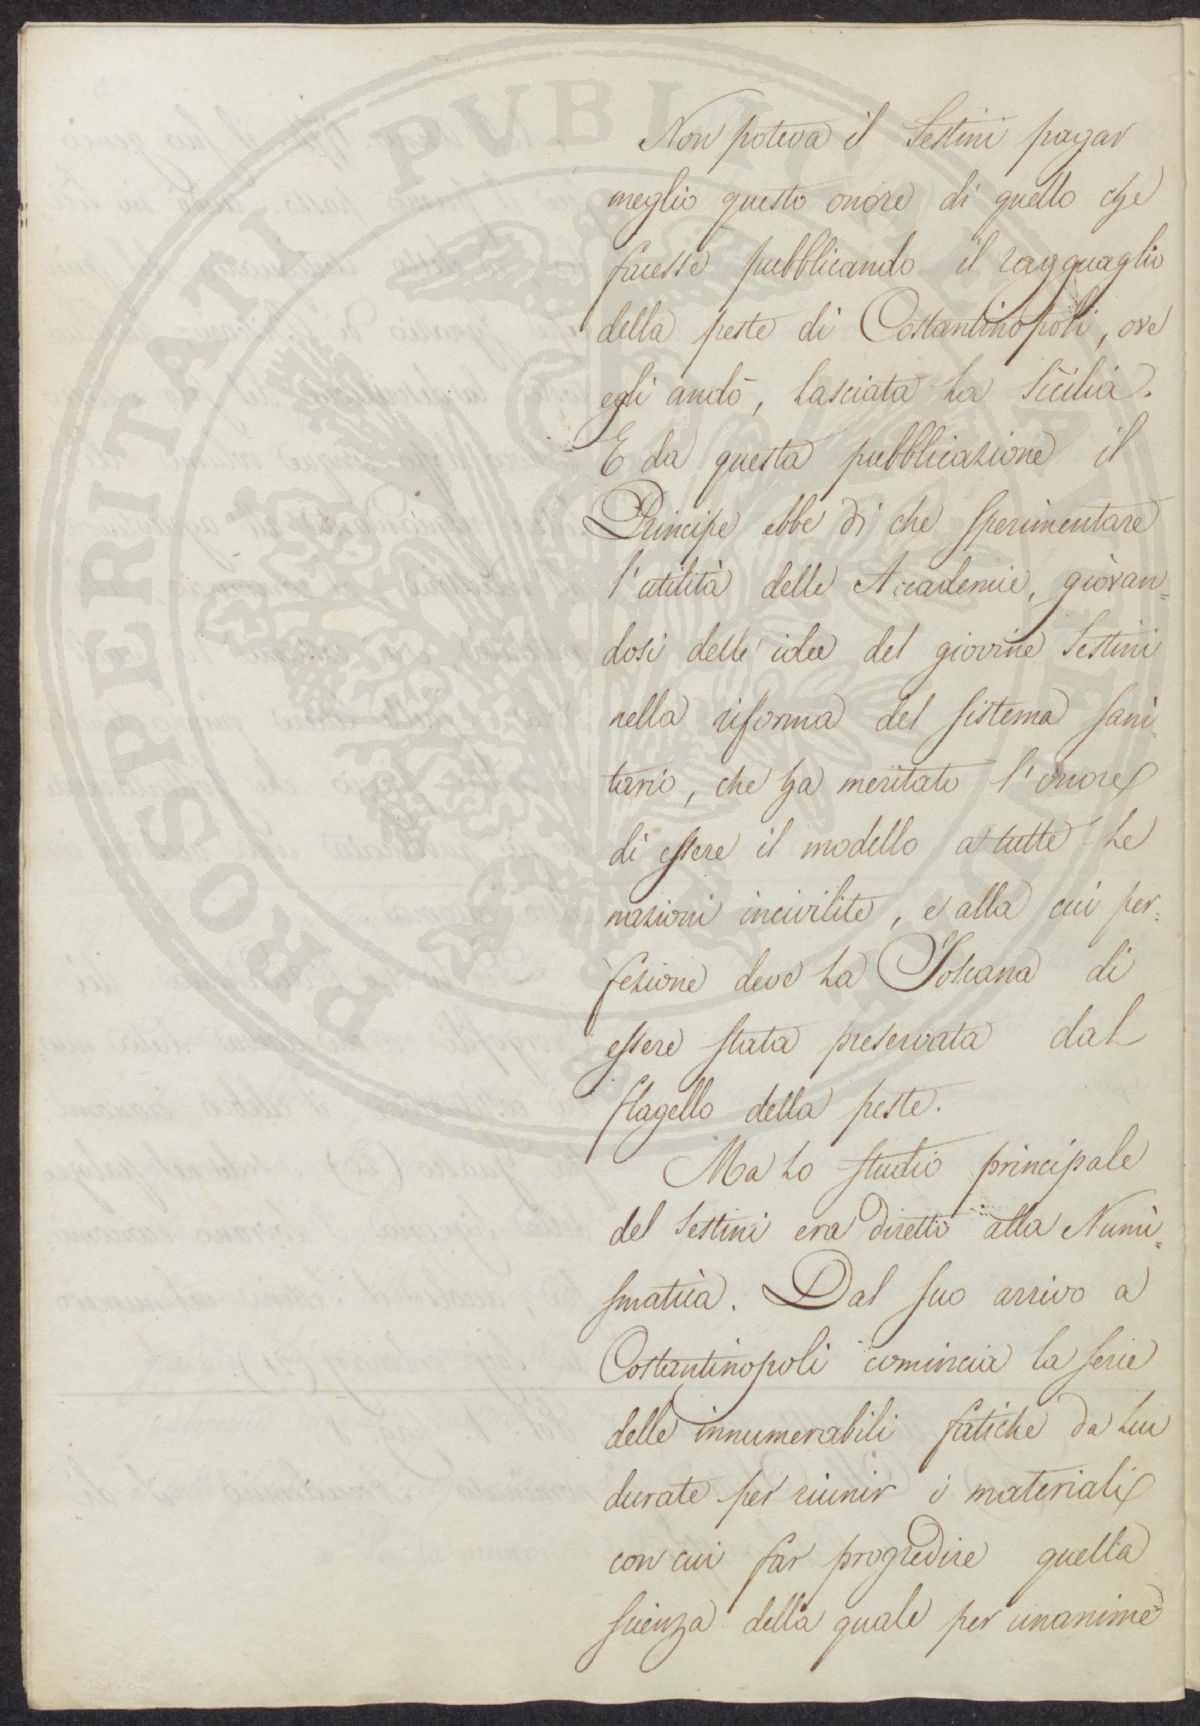 Non poteva il Sestini pagar
meglio questo onore di quello che
facesse pubblicando il ragguaglio
della peste di Costantinopoli, ove
egli andò, lasciata la Sicilia.
E da questa pubblicazione il
Principe ebbe di che sperimentare
l'utilità delle Accademie, giovan=
dosi delle idee del giovine Sestini
nella riforma del sistema sani=
tario, che ha meritato l'onore
di essere il modello a tutte le
nazioni incivilite, e alla cui per=
fezione deve la Toscana di
essere stata preservata dal
flagello della peste.
Ma lo studio principale
del Sestini era diretto alla Numi=
smatica. Dal suo arrivo a
Costantinopoli comincia la serie
delle innumerabili fatiche da lui
durate per riunir i materiali
con cui far progredire quella
scienza della quale per unanime
PROSPERITATI PVBLI